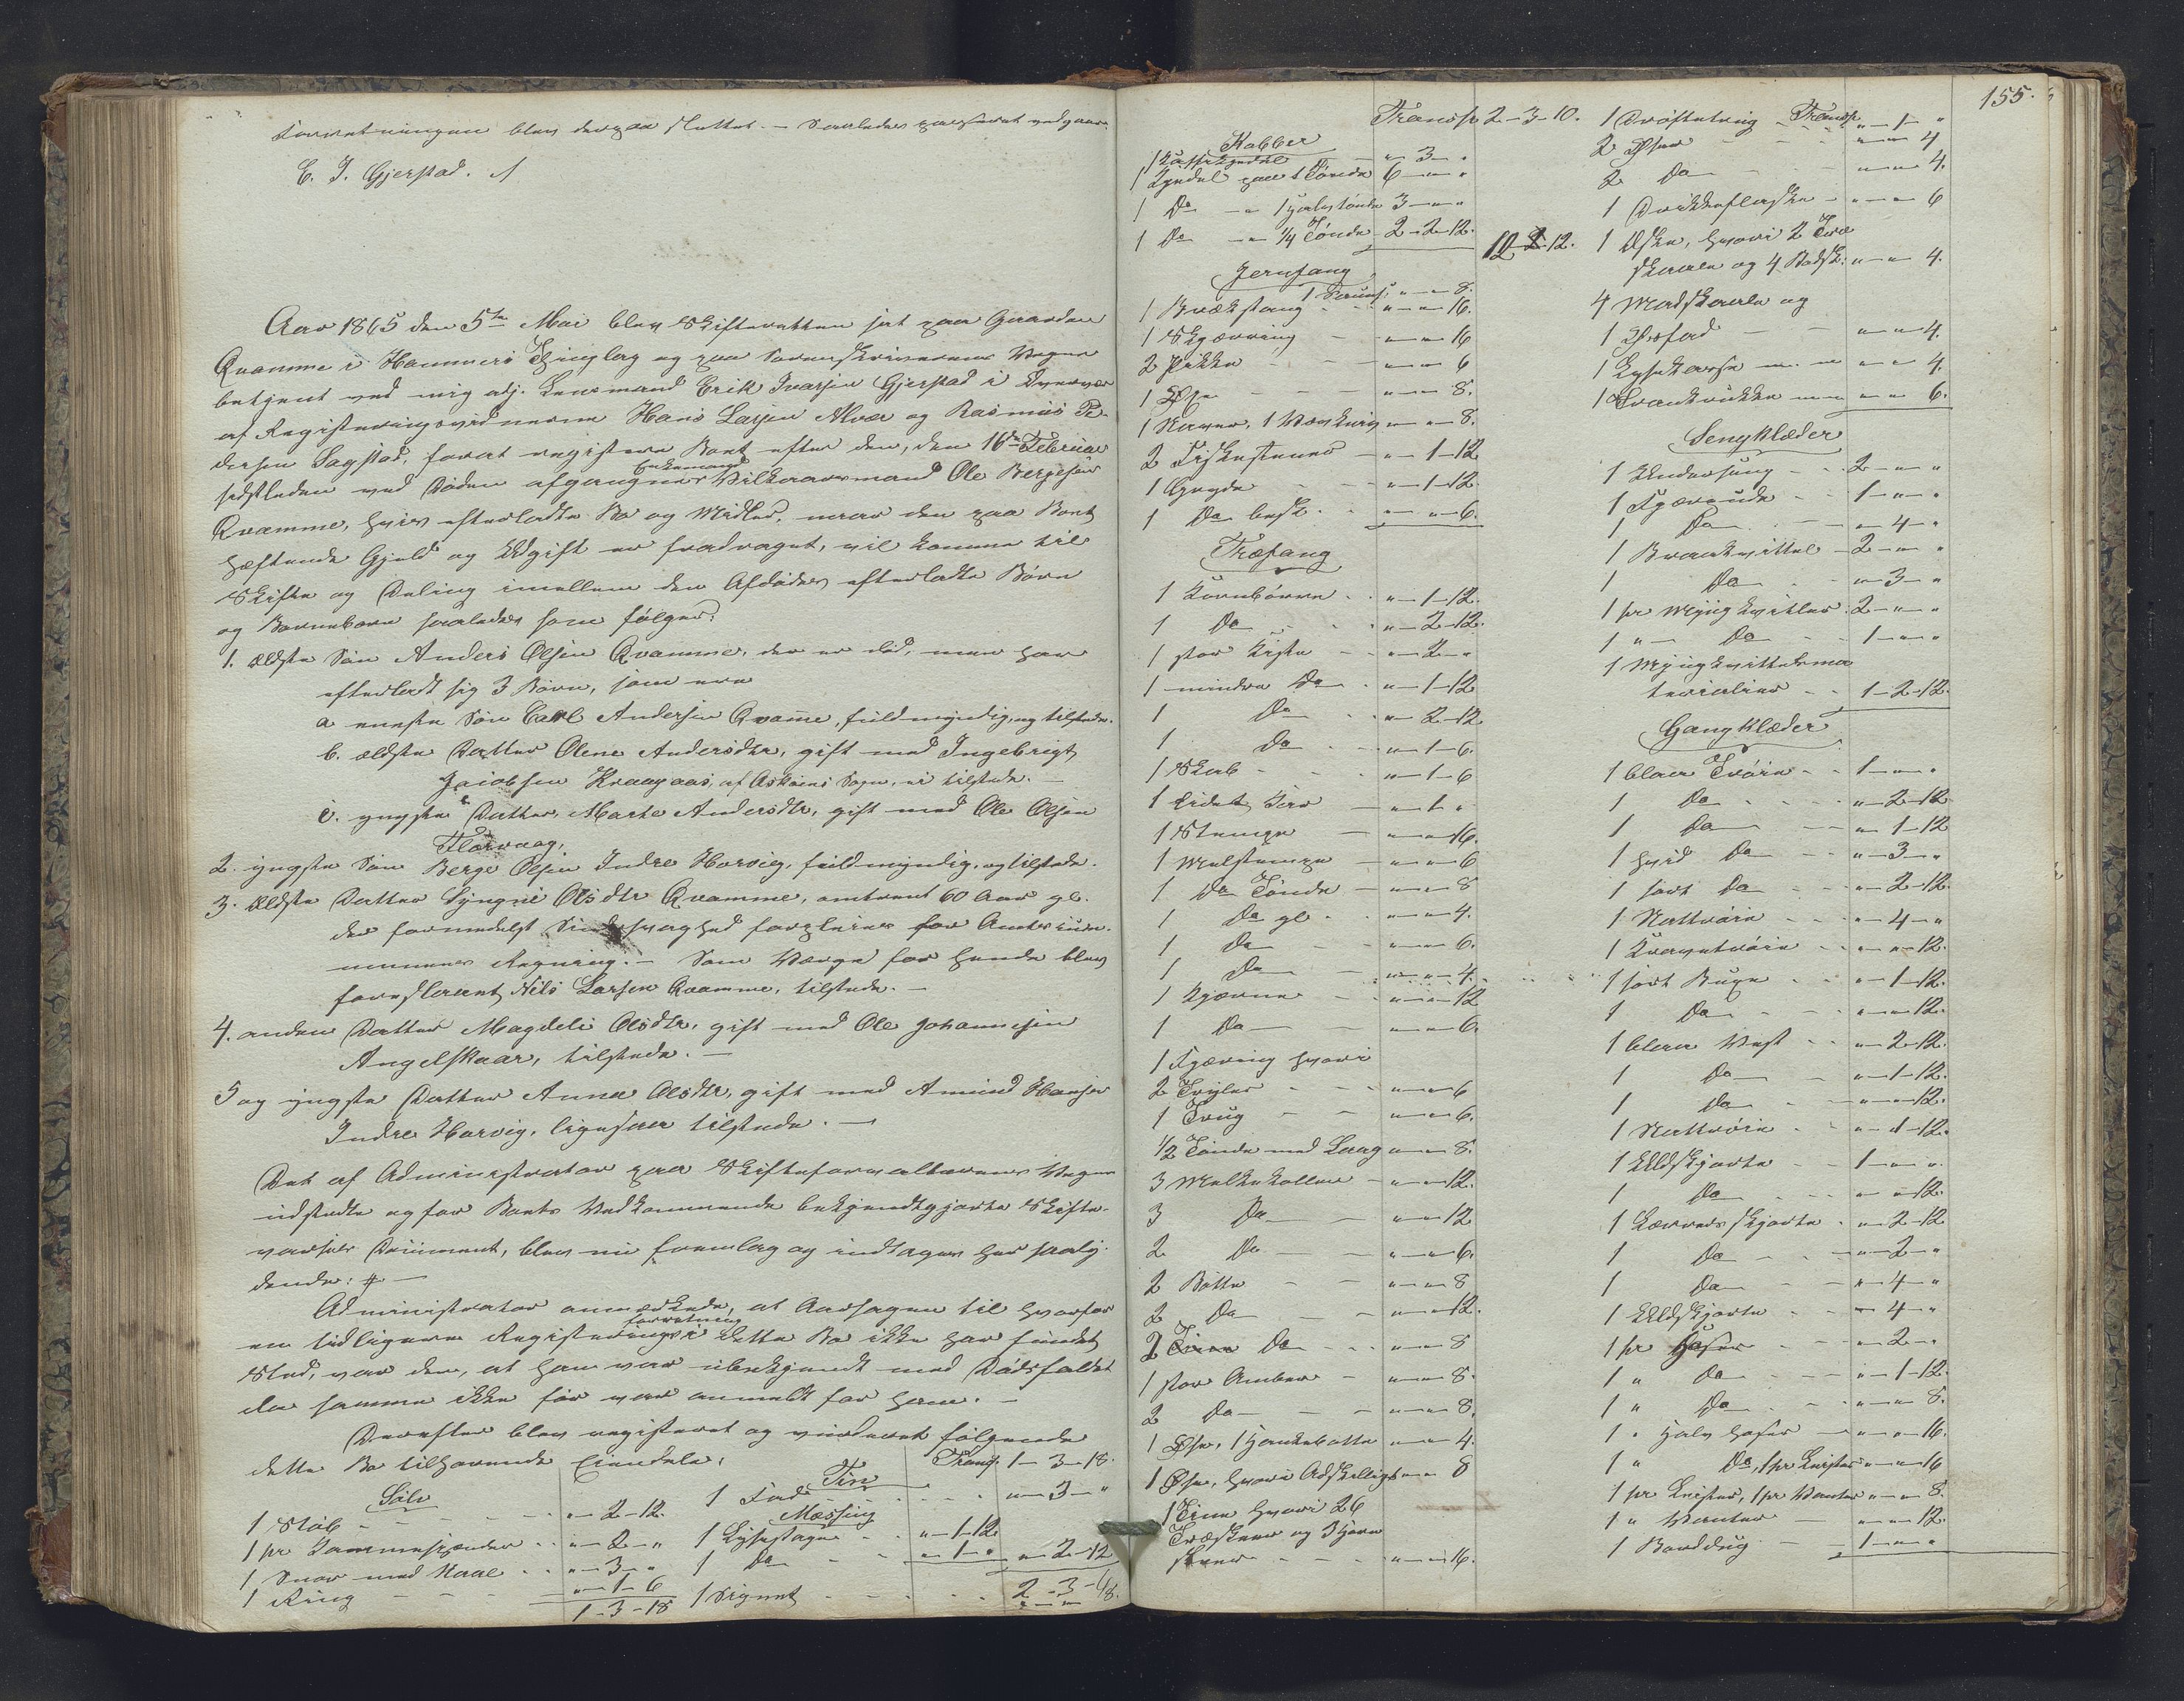 Forretningen blev derpaa sluttet. – Saaledes passeret vedgaaes
E. I. Gjerstad.
Aar 1865 den 5te Mai blev Skifteretten sat paa Gaarden
Qvamme i Hammers Thinglag og paa Sorenskriverens Vegne
betjent ved mig adj. Lensmand Erik Ivarsen Gjerstad i Overvær
af Registeringsvidnerne Hans Larsen Alvær og Rasmus Pe-
dersen Sagstad, forat registere Boet efter den, den 16de Februar
sidstleden ved Døden afgangne Enkemand Vilkaarsmand Ole Bergesen
Qvamme, hvis efterladte Bo og Midler, naar den paa Boet
hæftende Gjeld og Udgift er fradraget, vil komme til
Skifte og Deling imellem den Afdødes efterladte Børn
og Børnebørn saaledes som følger:
1. ældste Søn Anders Olsen Qvamme, der er død, men har
efterladt sig 3 Børn, som ere
a eneste Søn Carl Andersen Qvamme, fuldmyndig, og tilstede.
b. ældste Datter Olene Andersdtr, gift med Ingebrigt
Jacobsen Kraagaas, af Askøens Sogn, ei tilstede. –
c. yngste Datter Marte Andersdtr, gift med Ole Olsen
Florvaag,
2. yngste Søn Berge Olsen Indre Horvig, fuldmyndig, og tilstede.
3. Ældste Datter Syngni Olsdtr Qvamme, omtrent 60 Aar gl.
der formedelst Sindssvaghed forpleies for Amtscom-
munens Regning. – Som Værge for hende blev
foreslaaet Nils Larsen Qvamme, tilstede. –
4. anden Datter Magdeli Olsdtr, gift med Ole Johannesen
Angelskaar, tilstede. –
5 og yngste Datter Anna Olsdtr, gift med Amund Hansen
Indre Horvig, ligesaa tilstede. –
Det af Administrator paa Skifteforvalterens Vegne
udstedte og for Boets Vedkommende bekjendtgjorte Skifte-
varsels Document, blev nu fremlag og indtages her saaly-
dende: # –
Administrator anmærkede, at Aarsagen til hvorfor
en tidligere Registeringsforretning i dette Bo ikke har fundet
Sted, var den, at han var ubekjendt med Dødsfaldet
da samme ikke før var anmeldt for ham. –
Derefter blev registeret og vurderet følgende
dette Bo tilhørende Eiendele,
Sølv
1 Støb – – „ – 2 – 12.
1 pr Hammespænder – „ – 2 – „
1 Snor med Maal – „ – 3 – „
1 Ring – – „ – 1 – 6
1 – 3 – 18
Transp. 1 – 3 – 18.
Tin
1 Fad – – „ – 3 – „
Messing
1 Lysestage – „ – 1 – 12.
1 Do – – „ – 1 – „ „ – 2 – 12
1 Signet – –
2 – 3 – 18.
155.
Transp 2 – 3 – 10.
Kobber
1 Kaffekjedel – „ – 3 – „
1 Kjedel paa 1 Tønde 6 – „ – „
1 Do – „ 1 halv tønde 3 – „ – „
1 Do – „ 1/4 Tønde 2 – 2 – 12. 12 – 2 – 12.
Jernfang
1 Saug „ – „ – 8.
1 Brækstang – „ – „ – 16.
1 Skjæering – „ – „ – 16
2 Pikke – „ – „ – 6
1 Øxe – „ – „ – 8.
1 Naver, 1 Vævkniv „ – „ – 8.
2 Fiskestener – „ – 1 – 12
1 Gryde – „ – 1 – 12.
1 Do besk. „ – „ – 6.
Træfang
1 Kornbørre „ – 1 – 12.
1 Do – „ – 2 – 12.
1 stor Kiste – „ – 2 – „
1 mindre Do – „ – 1 – 12
1 Do „ – 2 – 12
1 Do – „ – 1 – 6.
1 Skab – „ – 1 – 6
1 lidet Kar – „ – 1 – „
1 Stampe – „ – „ – 16.
1 Melstampe – „ – „ – 6
1 Do Tønde – „ – „ – 8
1 Do gl. – „ – „ – 4.
1 Do – „ – „ – 6.
1 Do – „ – „ – 4.
1 Kjærne – „ – „ – 12
1 Do – „ – „ – 6.
1 Kjæring hvori
2 Trugler – „ – „ – 6
1 Trug – „ – „ – 6.
1/2 Tønde med Laag „ – „ – 8.
3 Melkekoller – „ – „ – 12.
3 Do – „ – „ – 12
2 Do – „ – „ – 6.
2 Bøtte – „ – „ – 8
2 Do – „ – „ – 12.
2 Do – „ – „ – 8
1 stor Ambar – „ – „ – 8.
2 Do – „ – „ – 8.
1 Øse, 1 Hankebøtte „ – „ – 4.
1 Øse, hvori Adskilligt „ – „ – 8
1 Tine hvori 26
Træskeer og 3 Horn
skeer – „ – „ – 16.
Transp.
1 Drøftetrug – „ – 1 – „
2 Øser – „ – „ – 4
2 Do – „ – „ – 4.
1 Drikkeflaske – „ – „ – 6
1 Æske, hvori 2 Træ
skaale og 4 Badsk: „ – „ – 4.
4 Madskaale og
1 Østfad – „ – „ – 4.
1 Lysekasse – „ – „ – 4.
1 Brandrække – „ – „ – 6.
Sengklæder
1 Undersæng – 2 – „ – „
1 Hovepude – 1 – „ – „
1 Do – „ – 4 – „
1 Braatvittel – 2 – „ – „
1 Do – „ – 3 – „
1 pr Myugkvitler 2 – „ – „
1 „ Do – 1 – „ – „
1 Myugkvittelsma
terialier – 1 – 2 – 12.
Gangklæder
1 blaa Trøie – 1 – „ – „
1 Do – „ – 2 – 12
1 Do – „ – 1 – 12
1 hvid Do – „ – 3 – „
1 sort Do – „ – 2 – 12.
1 Nattrøie – „ – 4 – „
1 Kravetrøie – „ – „ – 12.
1 sort Buxe – „ – 1 – 12.
1 Do – „ – „ – 12.
1 blaa Vest – „ – 2 – 12.
1 Do – „ – 1 – 12.
1 Do – „ – „ – 12.
1 Nattrøie – „ – 1 – 12.
1 Uldskjorte – 1 – „ – „
1 Do – „ – „ – 12.
1 Lærredsskjorte – „ – 2 – 12
1 Do – „ – 2 – „
1 Do – „ – 4 – „
1 Uldskjorte – „ – 4 – „
1 pr Hoser – „ – 2 – „
1 „ Do – „ – 1 – 12.
1 „ Do – „ – „ – 8.
1 „ Halv hoser – „ – „ – 16.
1 „ Do, 1 pr Leister „ – „ – 16
1 pr Leister, 1 pr Vanter „ – „ – 8.
1 „ Vanter – „ – „ – 12.
1 Borddug – 1 – „ – „